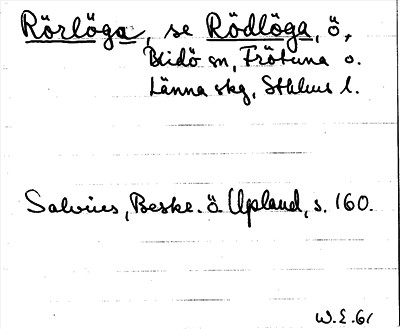 Rörlöga, se Rödlöga, ö,
Blidö sn, Frötuna o.
Länna skg, Sthlms l.
Salvius, Beskr. ö. Upland, s. 160.
W.E.61